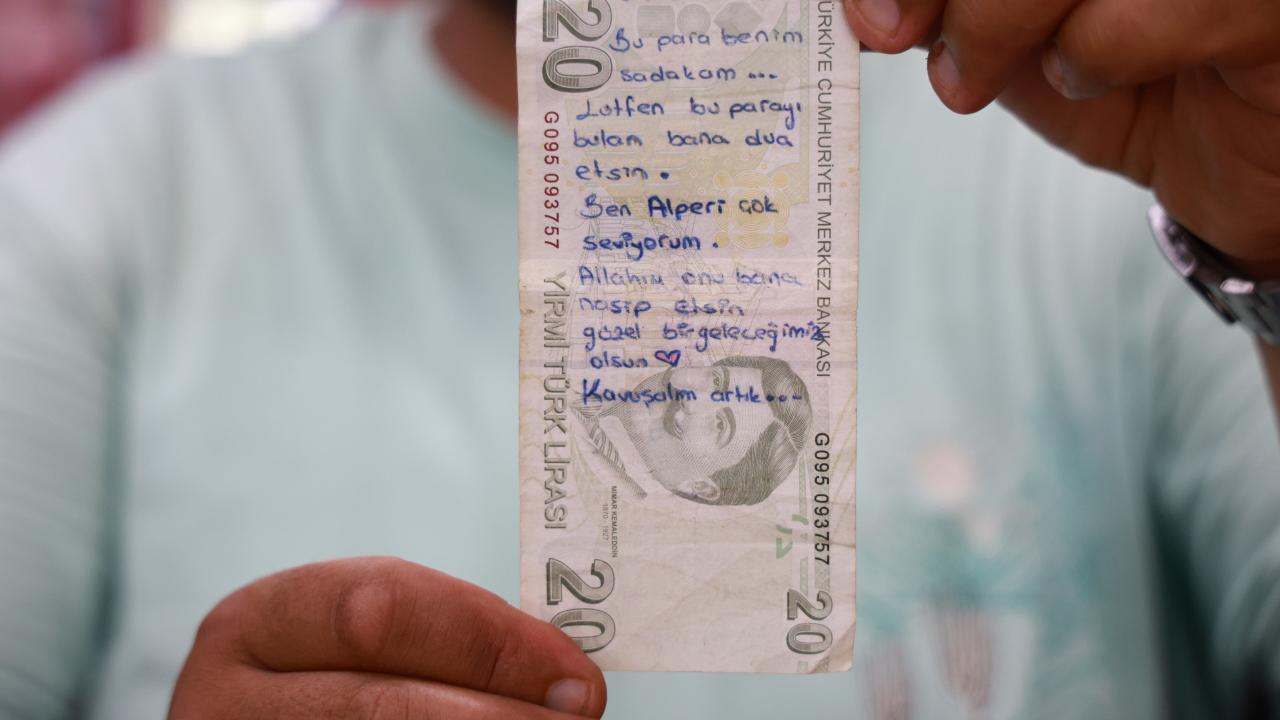 Bu para benim
sadakam ...
Lütfen bu parayı
bulan bana dua
etsin .
Ben Alperi çok
seviyorum .
Allahım onu bana
nasip etsin
güzel bir geleceğimiz
olsun ♥
Kavuşalım artık....
20
G095 093757
YİRMİ TÜRK LİRASI
20
TÜRKİYE CUMHURİYET MERKEZ BANKASI
G095 093757
20
MİMAR KEMALEDDİN
1870 - 1927